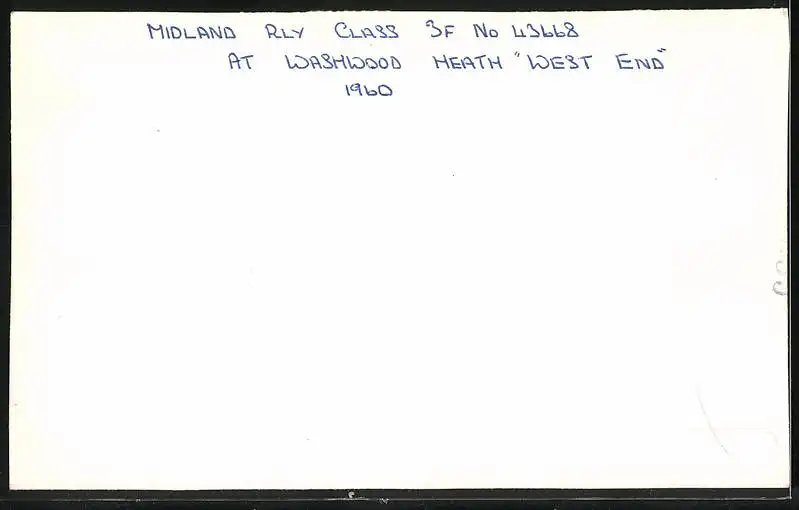 MIDLAND RLY CLASS 3F No 43668
AT WASHWOOD HEATH "WEST END"
1960